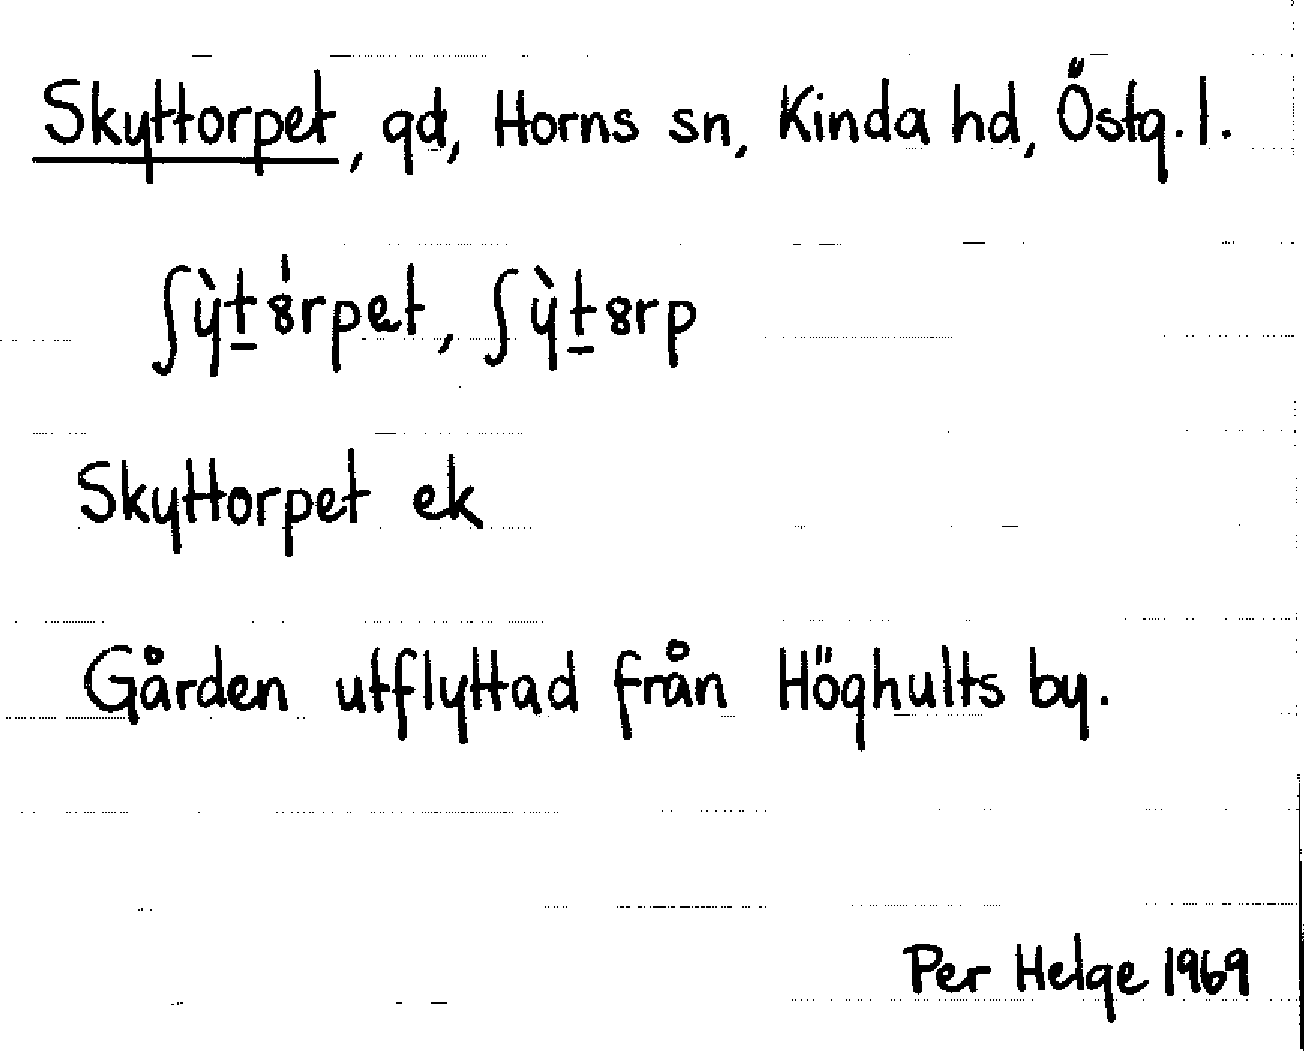 Skyttorpet, gd, Horns sn, Kinda hd, Östg. l.
ʃỳt̠8̍rpet, ʃỳt̠8rp
Skyttorpet ek
Gården utflyttad från Höghults by.
Per Helge 1969